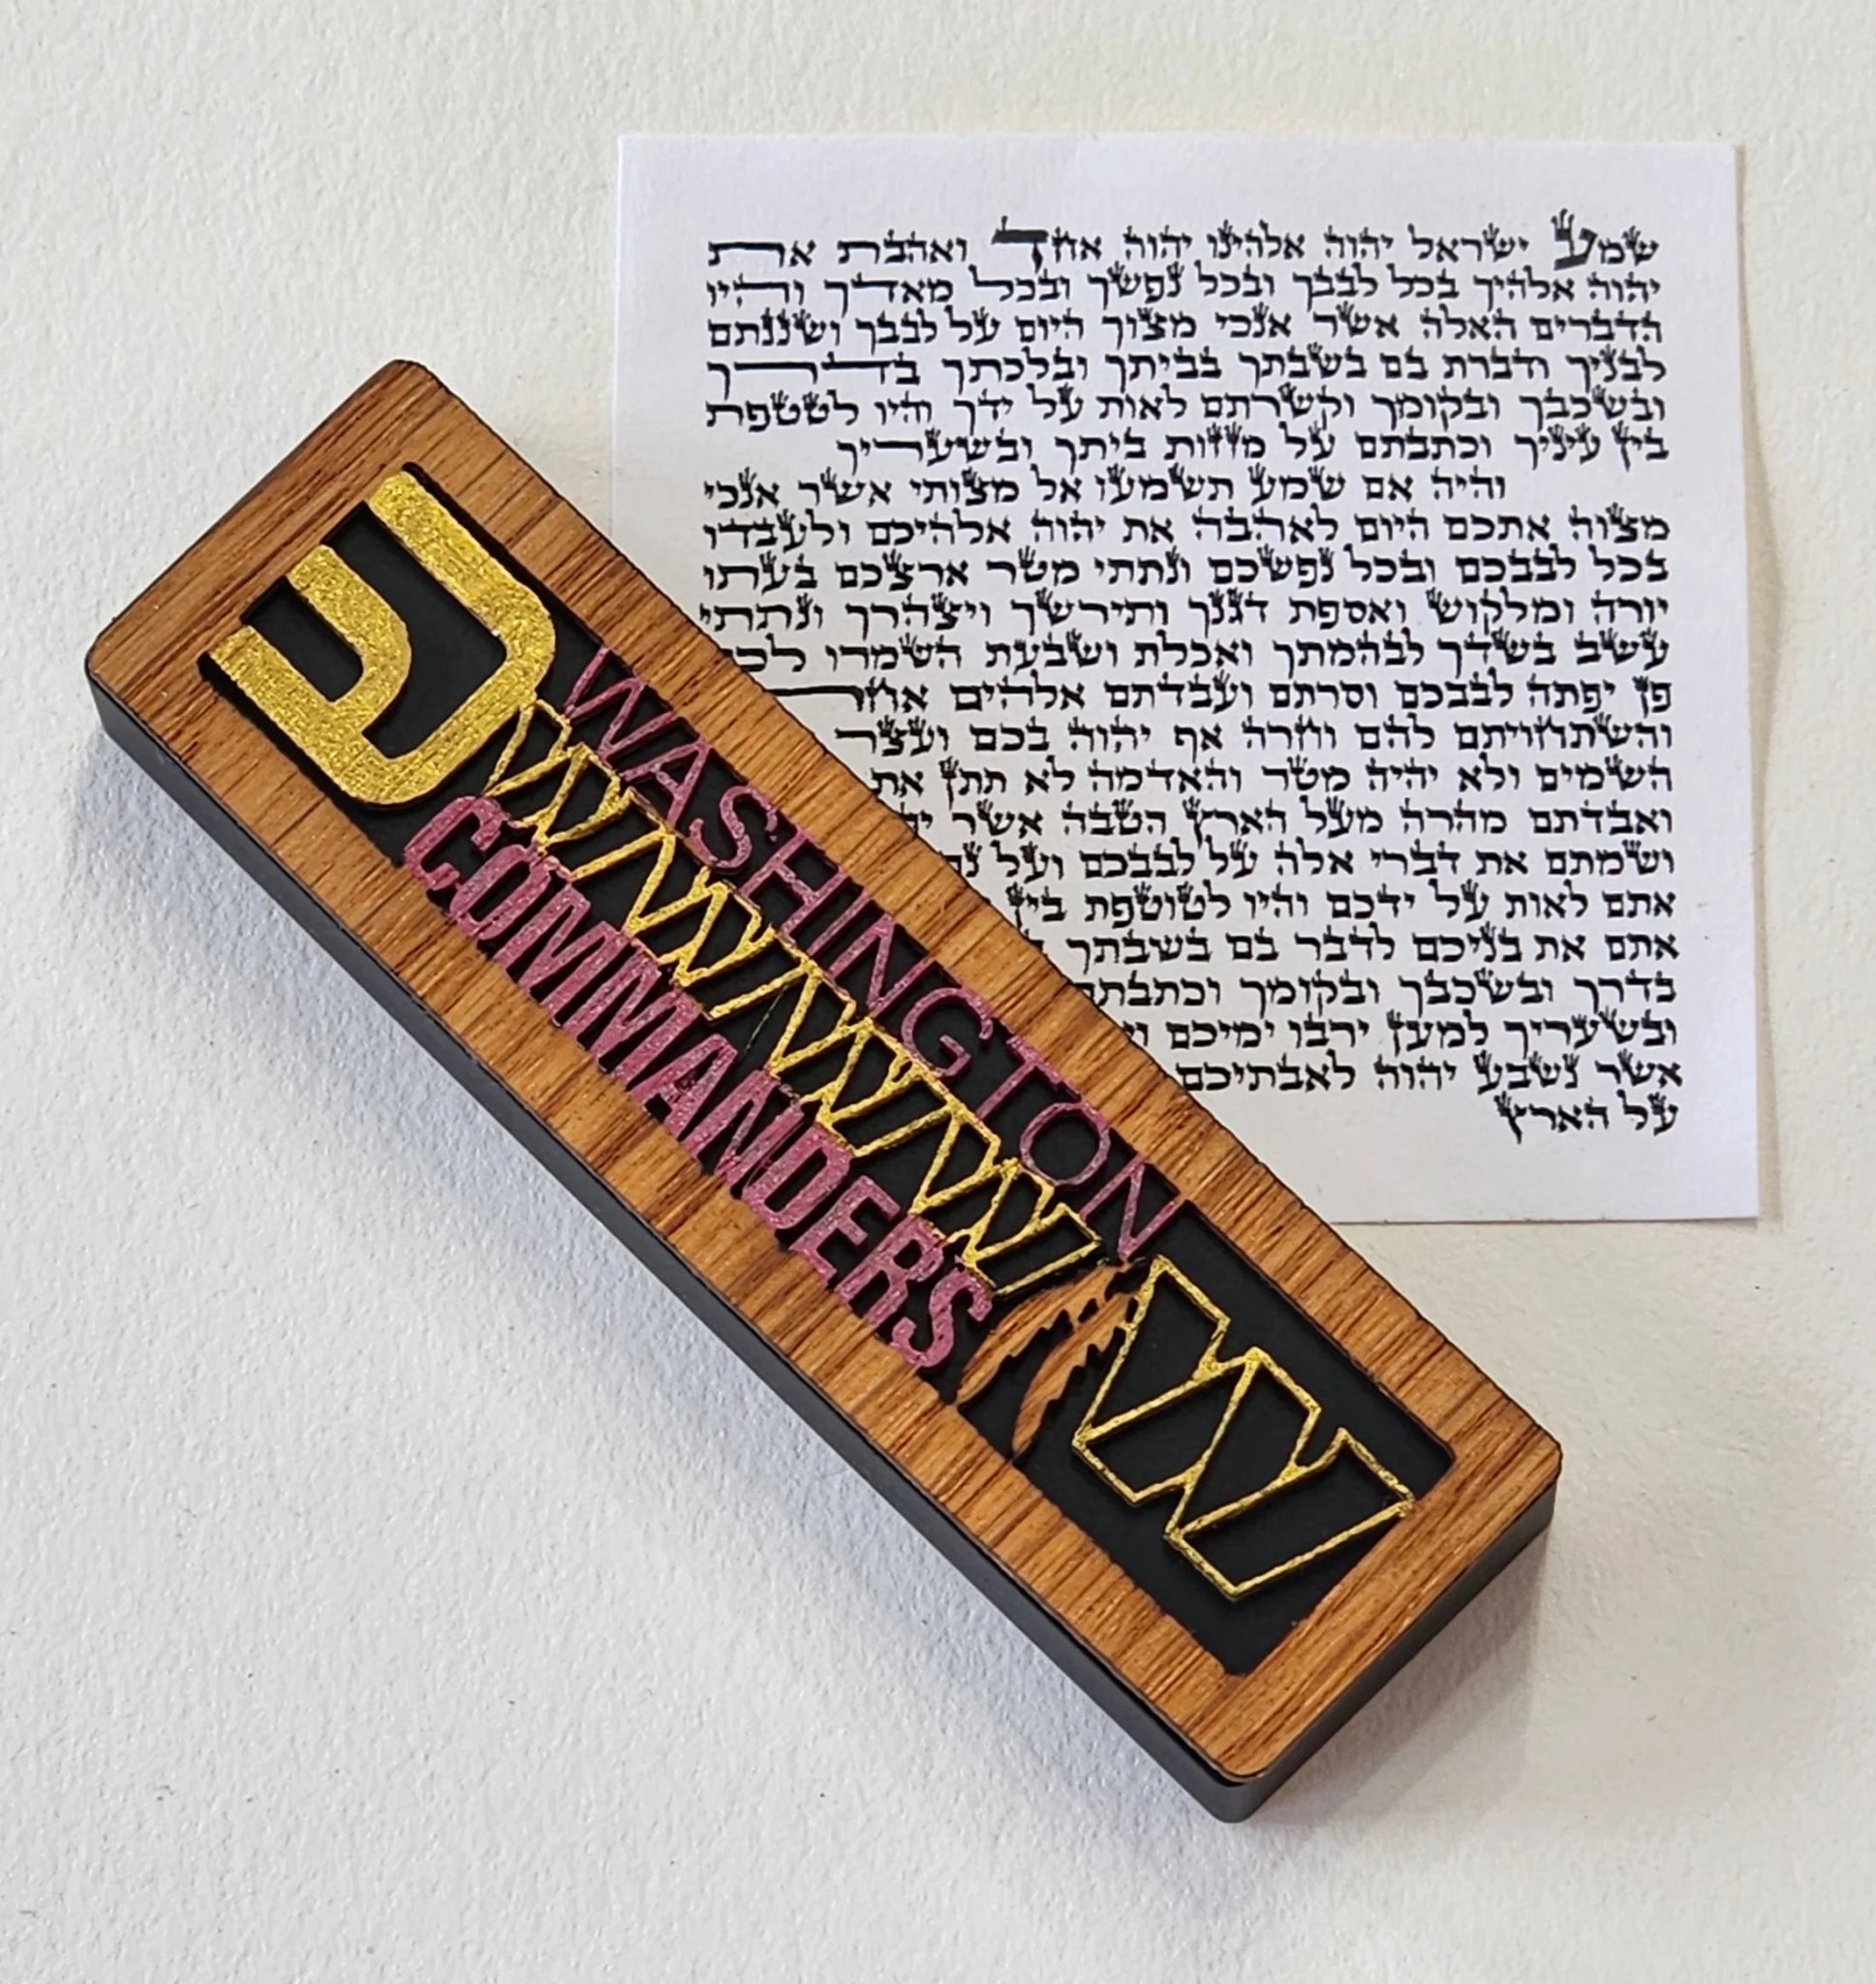 ש
WASHINGTON
COMMANDERS
W
שמע ישראל יהוה אלהינו יהוה אחד ואהבת את
יהוה אלהיך בכל לבבך ובכל נפשך ובכל מאדך והיו
הדברים האלה אשר אנכי מצוך היום על לבבך ושננתם
לבניך ודברת בם בשבתך בביתך ובלכתך בדרך
ובשכבך ובקומך וקשרתם לאות על ידך והיו לטטפת
בין עיניך וכתבתם על מזזות ביתך ובשעריך
והיה אם שמע תשמעו אל מצותי אשר אנכי
מצוה אתכם היום לאהבה את יהוה אלהיכם ולעבדו
בכל לבבכם ובכל נפשכם ונתתי מטר ארצכם בעתו
יורה ומלקוש ואספת דגנך ותירשך ויצהרך ונתתי
עשב בשדך לבהמתך ואכלת ושבעת השמרו
פן יפתה לבבכם וסרתם ועבדתם אלהים
והשתחויתם להם וחרה אף יהוה בכם ועצר
השמים ולא יהיה מטר והאדמה לא תתן את
ואבדתם מהרה מעל הארץ הטבה אשר
ושמתם את דברי אלה על לבבכם ועל
אתם לאות על ידכם והיו לטוטפת בין
אתם את בניכם לדבר בם בשבתך
בדרך ובשכבך ובקומך וכתבתם
ובשעריך למען ירבו ימיכם
אשר נשבע יהוה לאבתיכם
על הארץ